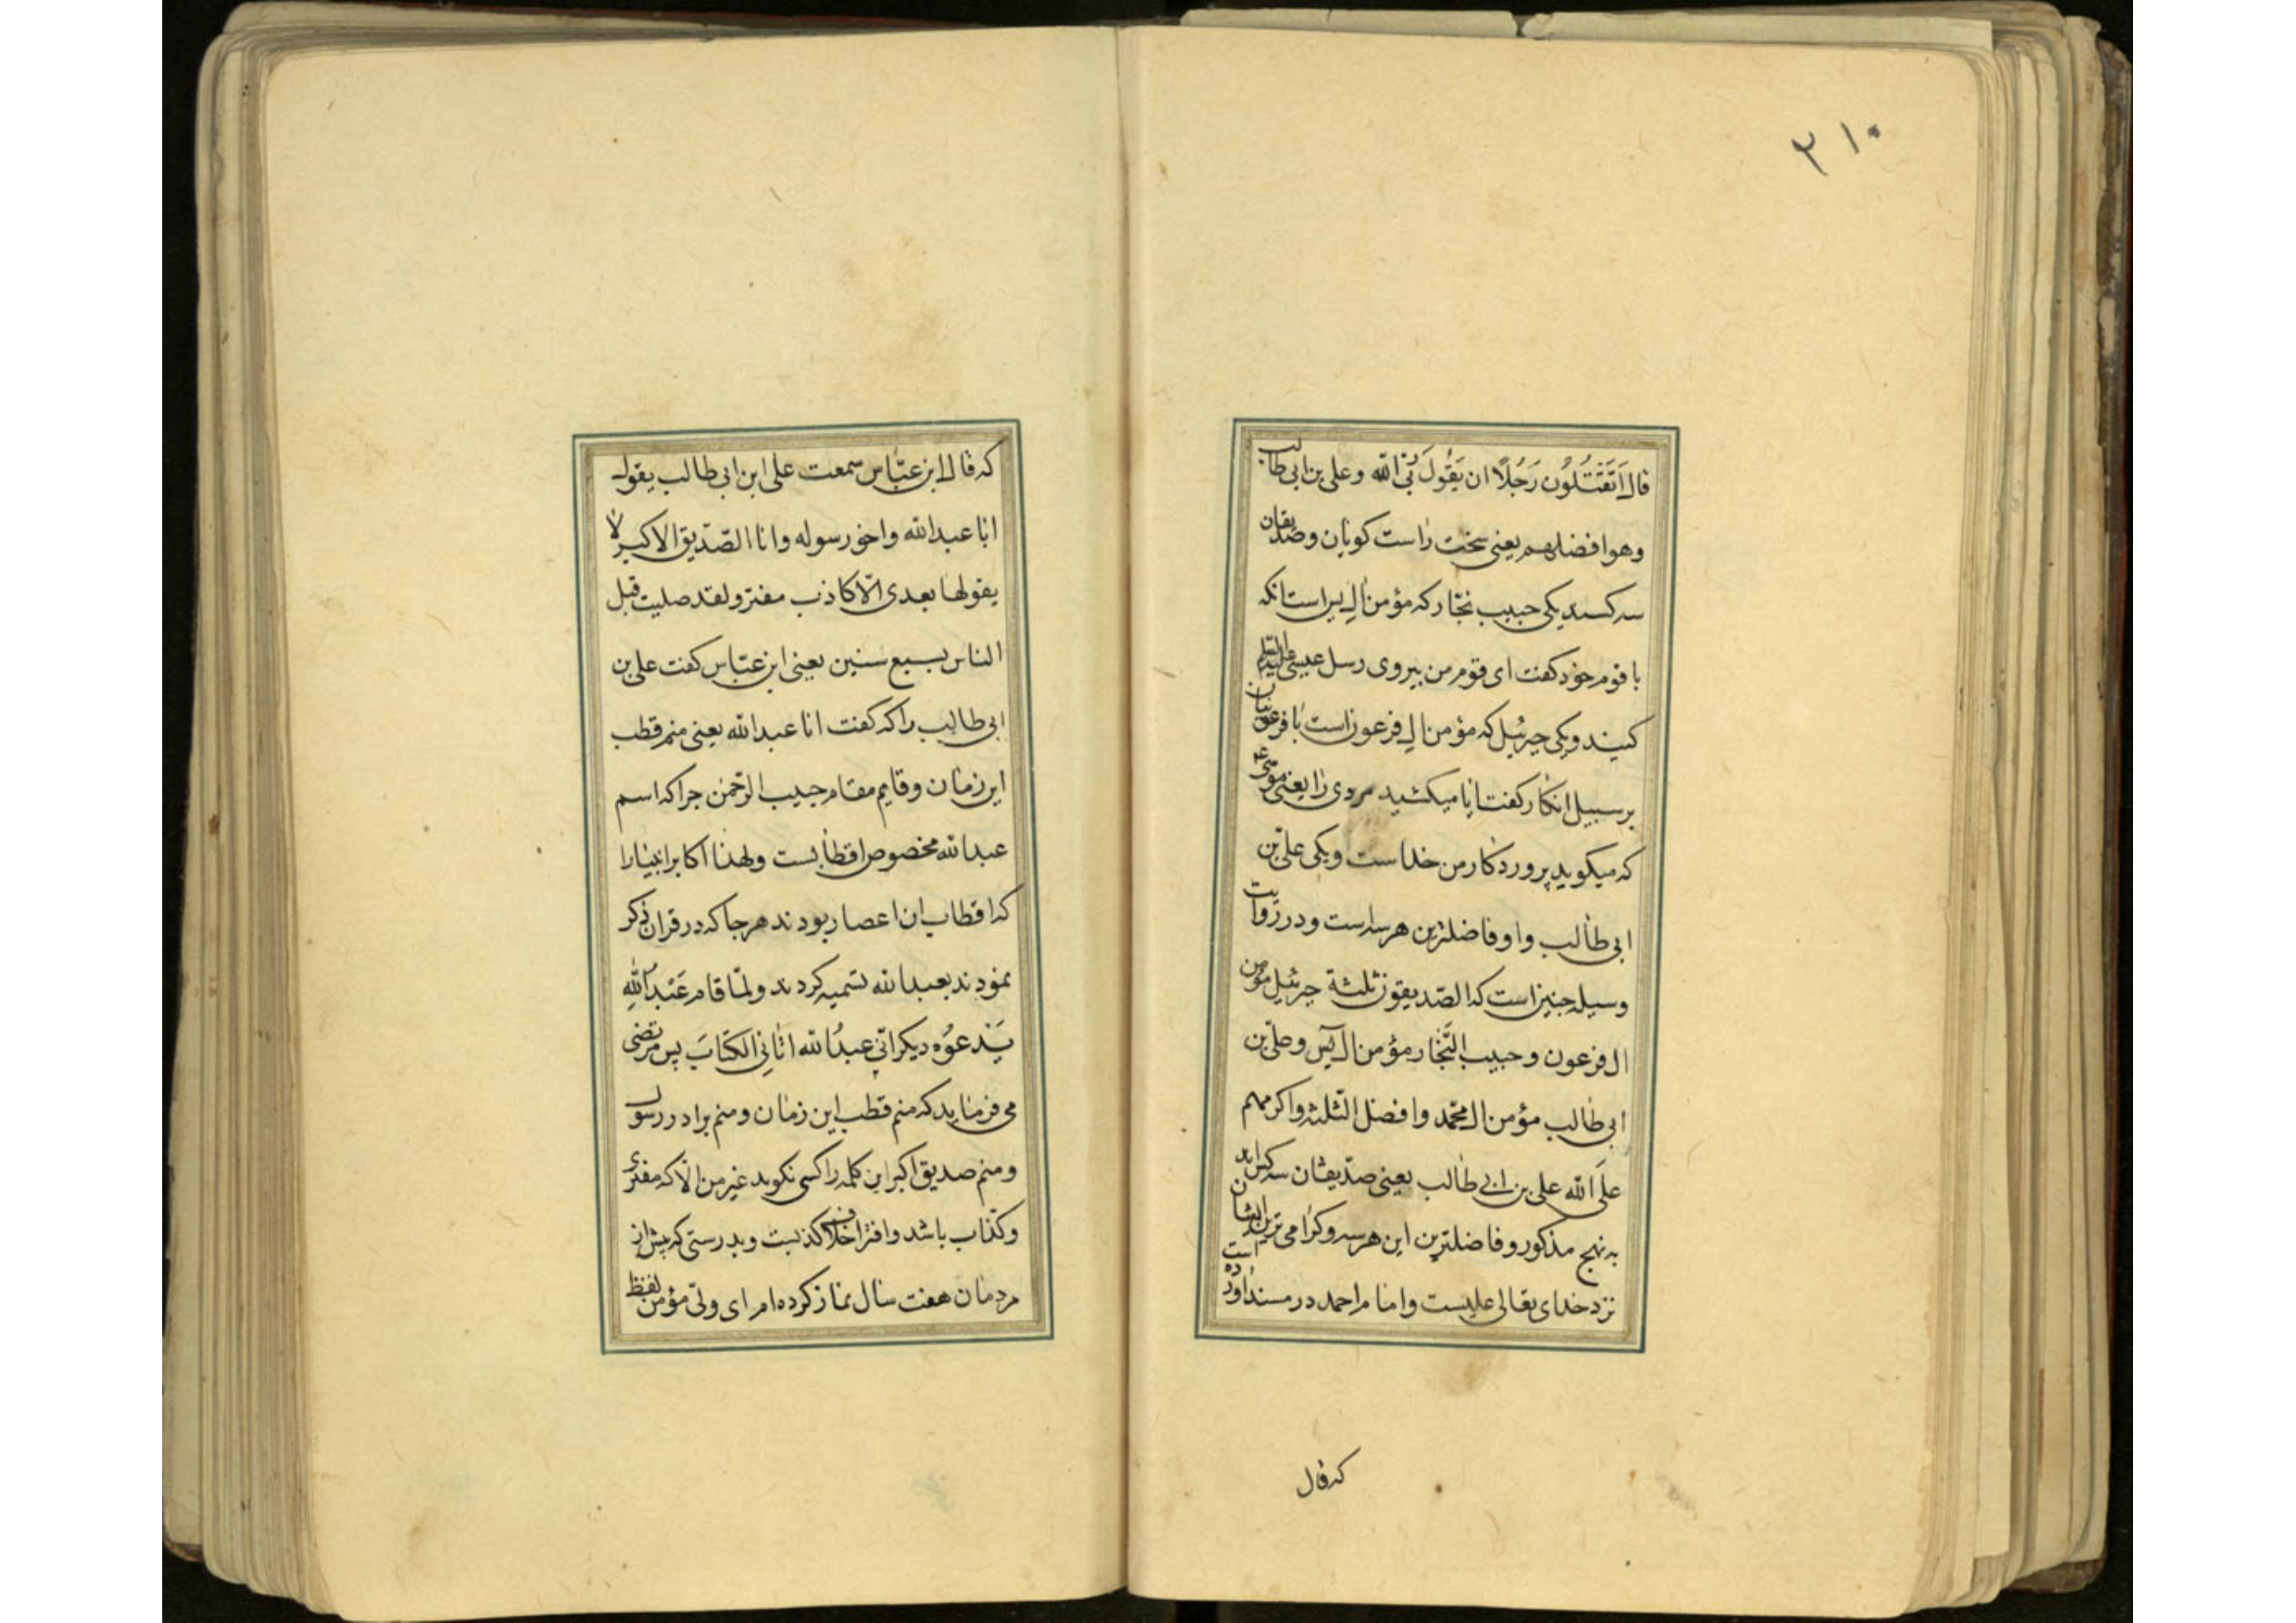 ۲۱۰
قال اَتَقْتُلُون رَجُلًا ان يَقُولَ ربّى الله وعلى بن ابى طالب
وهو افضلهم يعنى سخت راست كويان وصديقان
سه كسند يكى حبيب نجّار كه مؤمن ال يس است انكه
با قوم خود كفت اى قوم من پيروى رسل عيسى عليه السلام
كنيد ويكى حزئيل كه مؤمن ال فرعون است با فرعونيان
بر سبيل انكار كفت ايا ميكشيد مردى را يعنى موسى ع
كه ميكويد پروردكار من خداست ويكى علىّ بن
ابى طالب واو فاضلترين هر سه است ودر روايت
وسيله چنين است كه الصّديقون ثلثة حزئيل مؤمن
ال فرعون وحبيب النّجّار مؤمن ال يٓس وعلىّ بن
ابى طالب مؤمن ال محمّد وافضل الثّلثه واكرمهم
علَى الله على بن ابى طالب يعنى صدّيقان سه كس اند
به نهج مذكور وفاضلترين اين هر سه وكرامى ترين ايشان
نزد خداى تعالى عليست وامام احمد در مسند اورده است
كه قال
كه قال ابن عبّاس سمعت على ابن ابى طالب يقول
انا عبد الله واخو رسوله وانا الصّدّيق الاكبر لا
يقولها بعدى الّا كاذب مفتر ولقد صليت قبل
الناس بسبع سنين يعنى ابن عبّاس كفت على بن
ابى طالب را كه كفت انا عبد الله يعنى منم قطب
اين زمان وقايم مقام حبيب الرّحمن چرا كه اسم
عبد الله مخصوص اقطابست ولهذا اكابر انبيا را
كه اقطاب ان اعصار بودند هر جا كه در قران ذكر
نمودند بعبد الله تسميه كردند ولمّا قام عَبْدُ اللهِ
يَدعُوُه ديكر انّى عبدُ الله اتانِى الكتابَ پس مرتضى
مى فرمايد كه منم قطب اين زمان ومنم برادر رسول
ومنم صديق اكبر اين كلمه را كسى نكويد غير من الّا كه مفترى
وكذّاب باشد وافترا خلاف كذبست وبدرستى كه پيش از
مردمان هفت سال نماز كرده ام اى ولىّ مؤمن لفظ